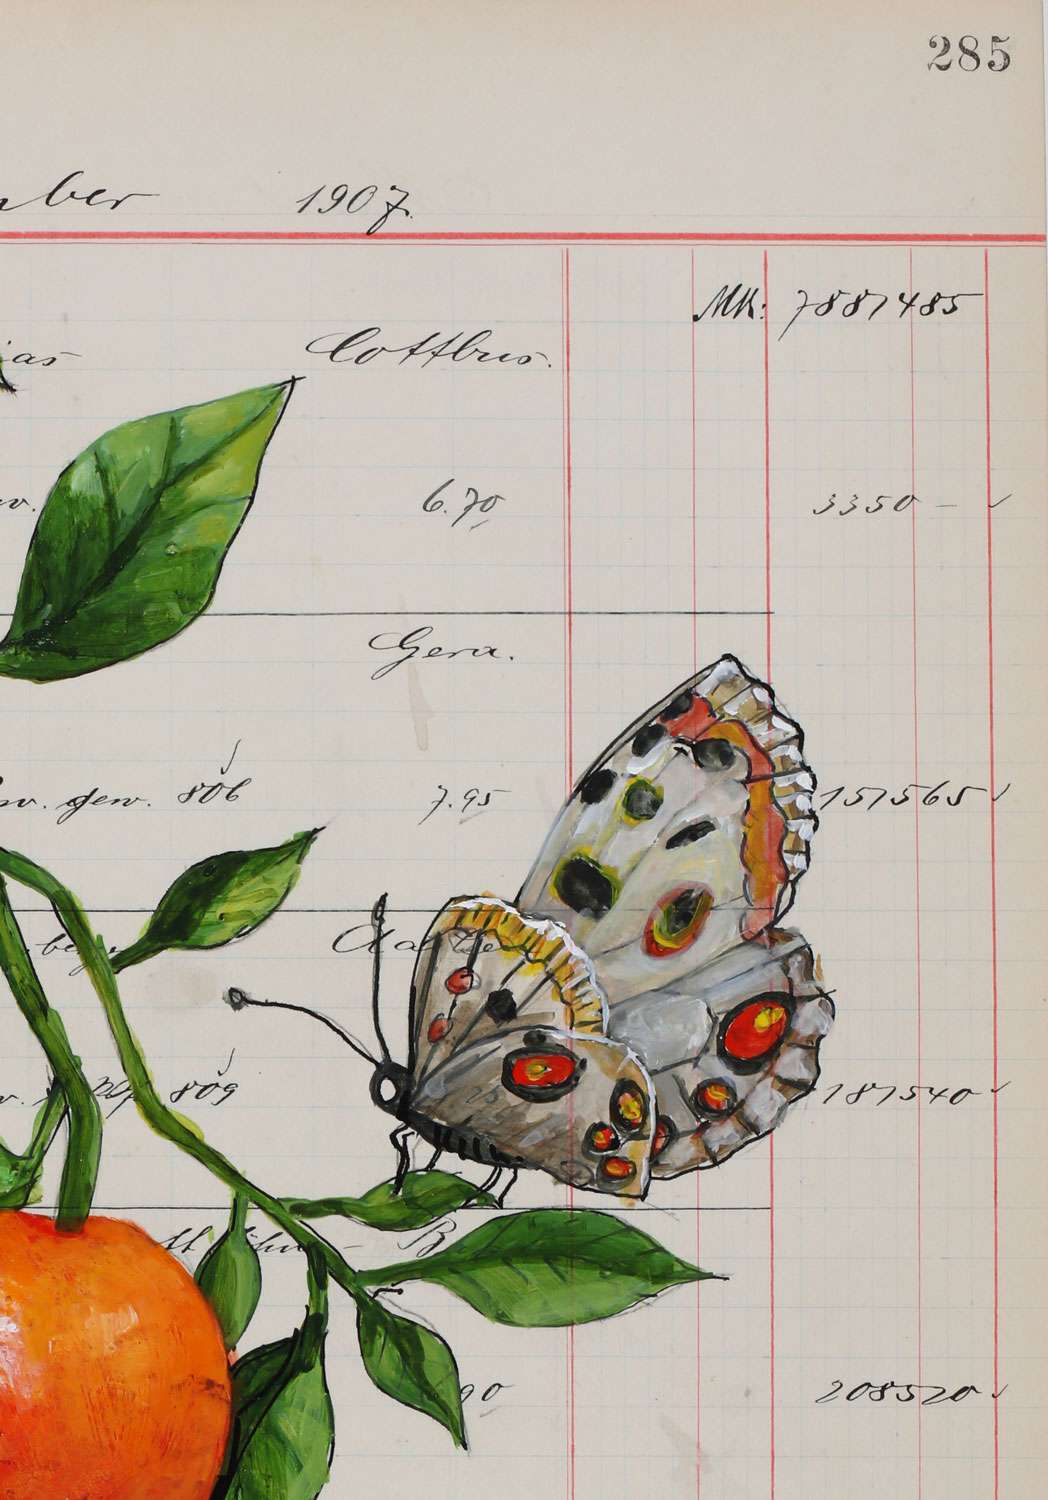 285
ber 1907.
MK: 7881485
as Cottbus.
6.70 3350 –
Gera.
gew. 806 7.95 151565
809 181540
B
90 208520